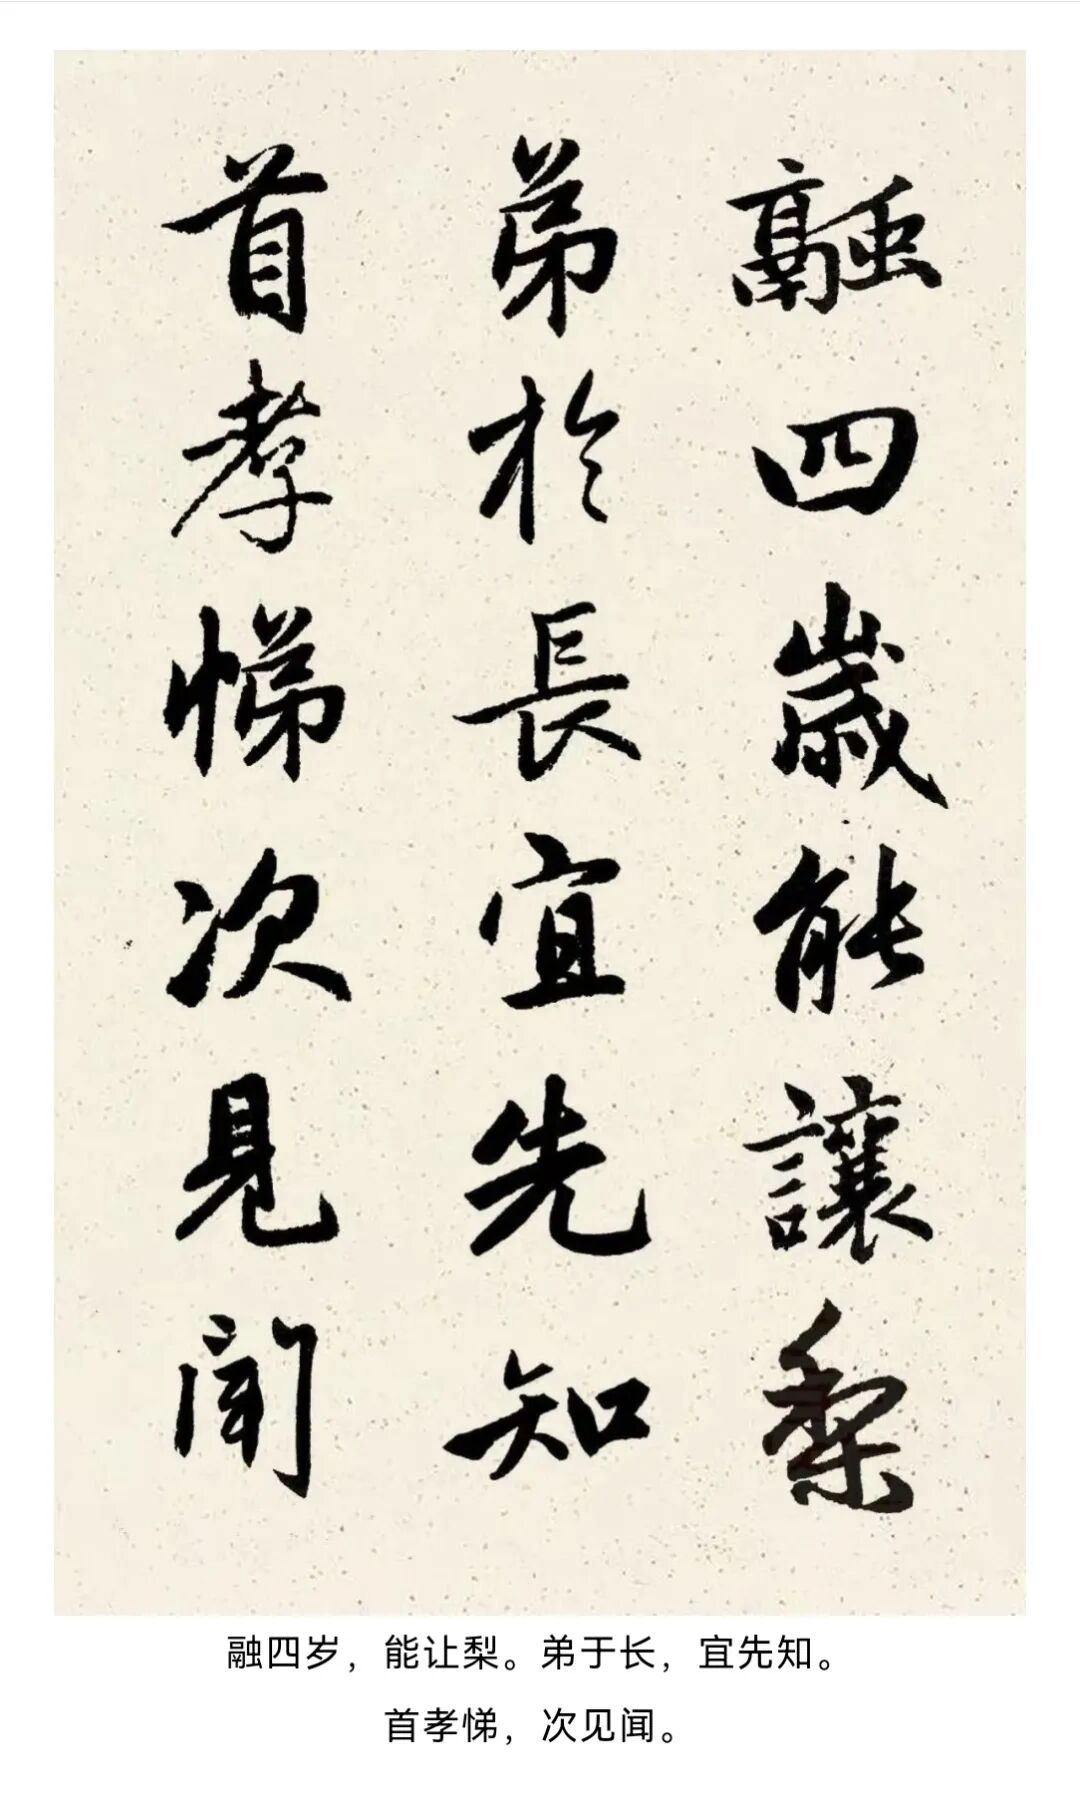 融四歲能讓梨
弟於長宜先知
首孝悌次見聞
融四岁，能让梨。弟于长，宜先知。
首孝悌，次见闻。